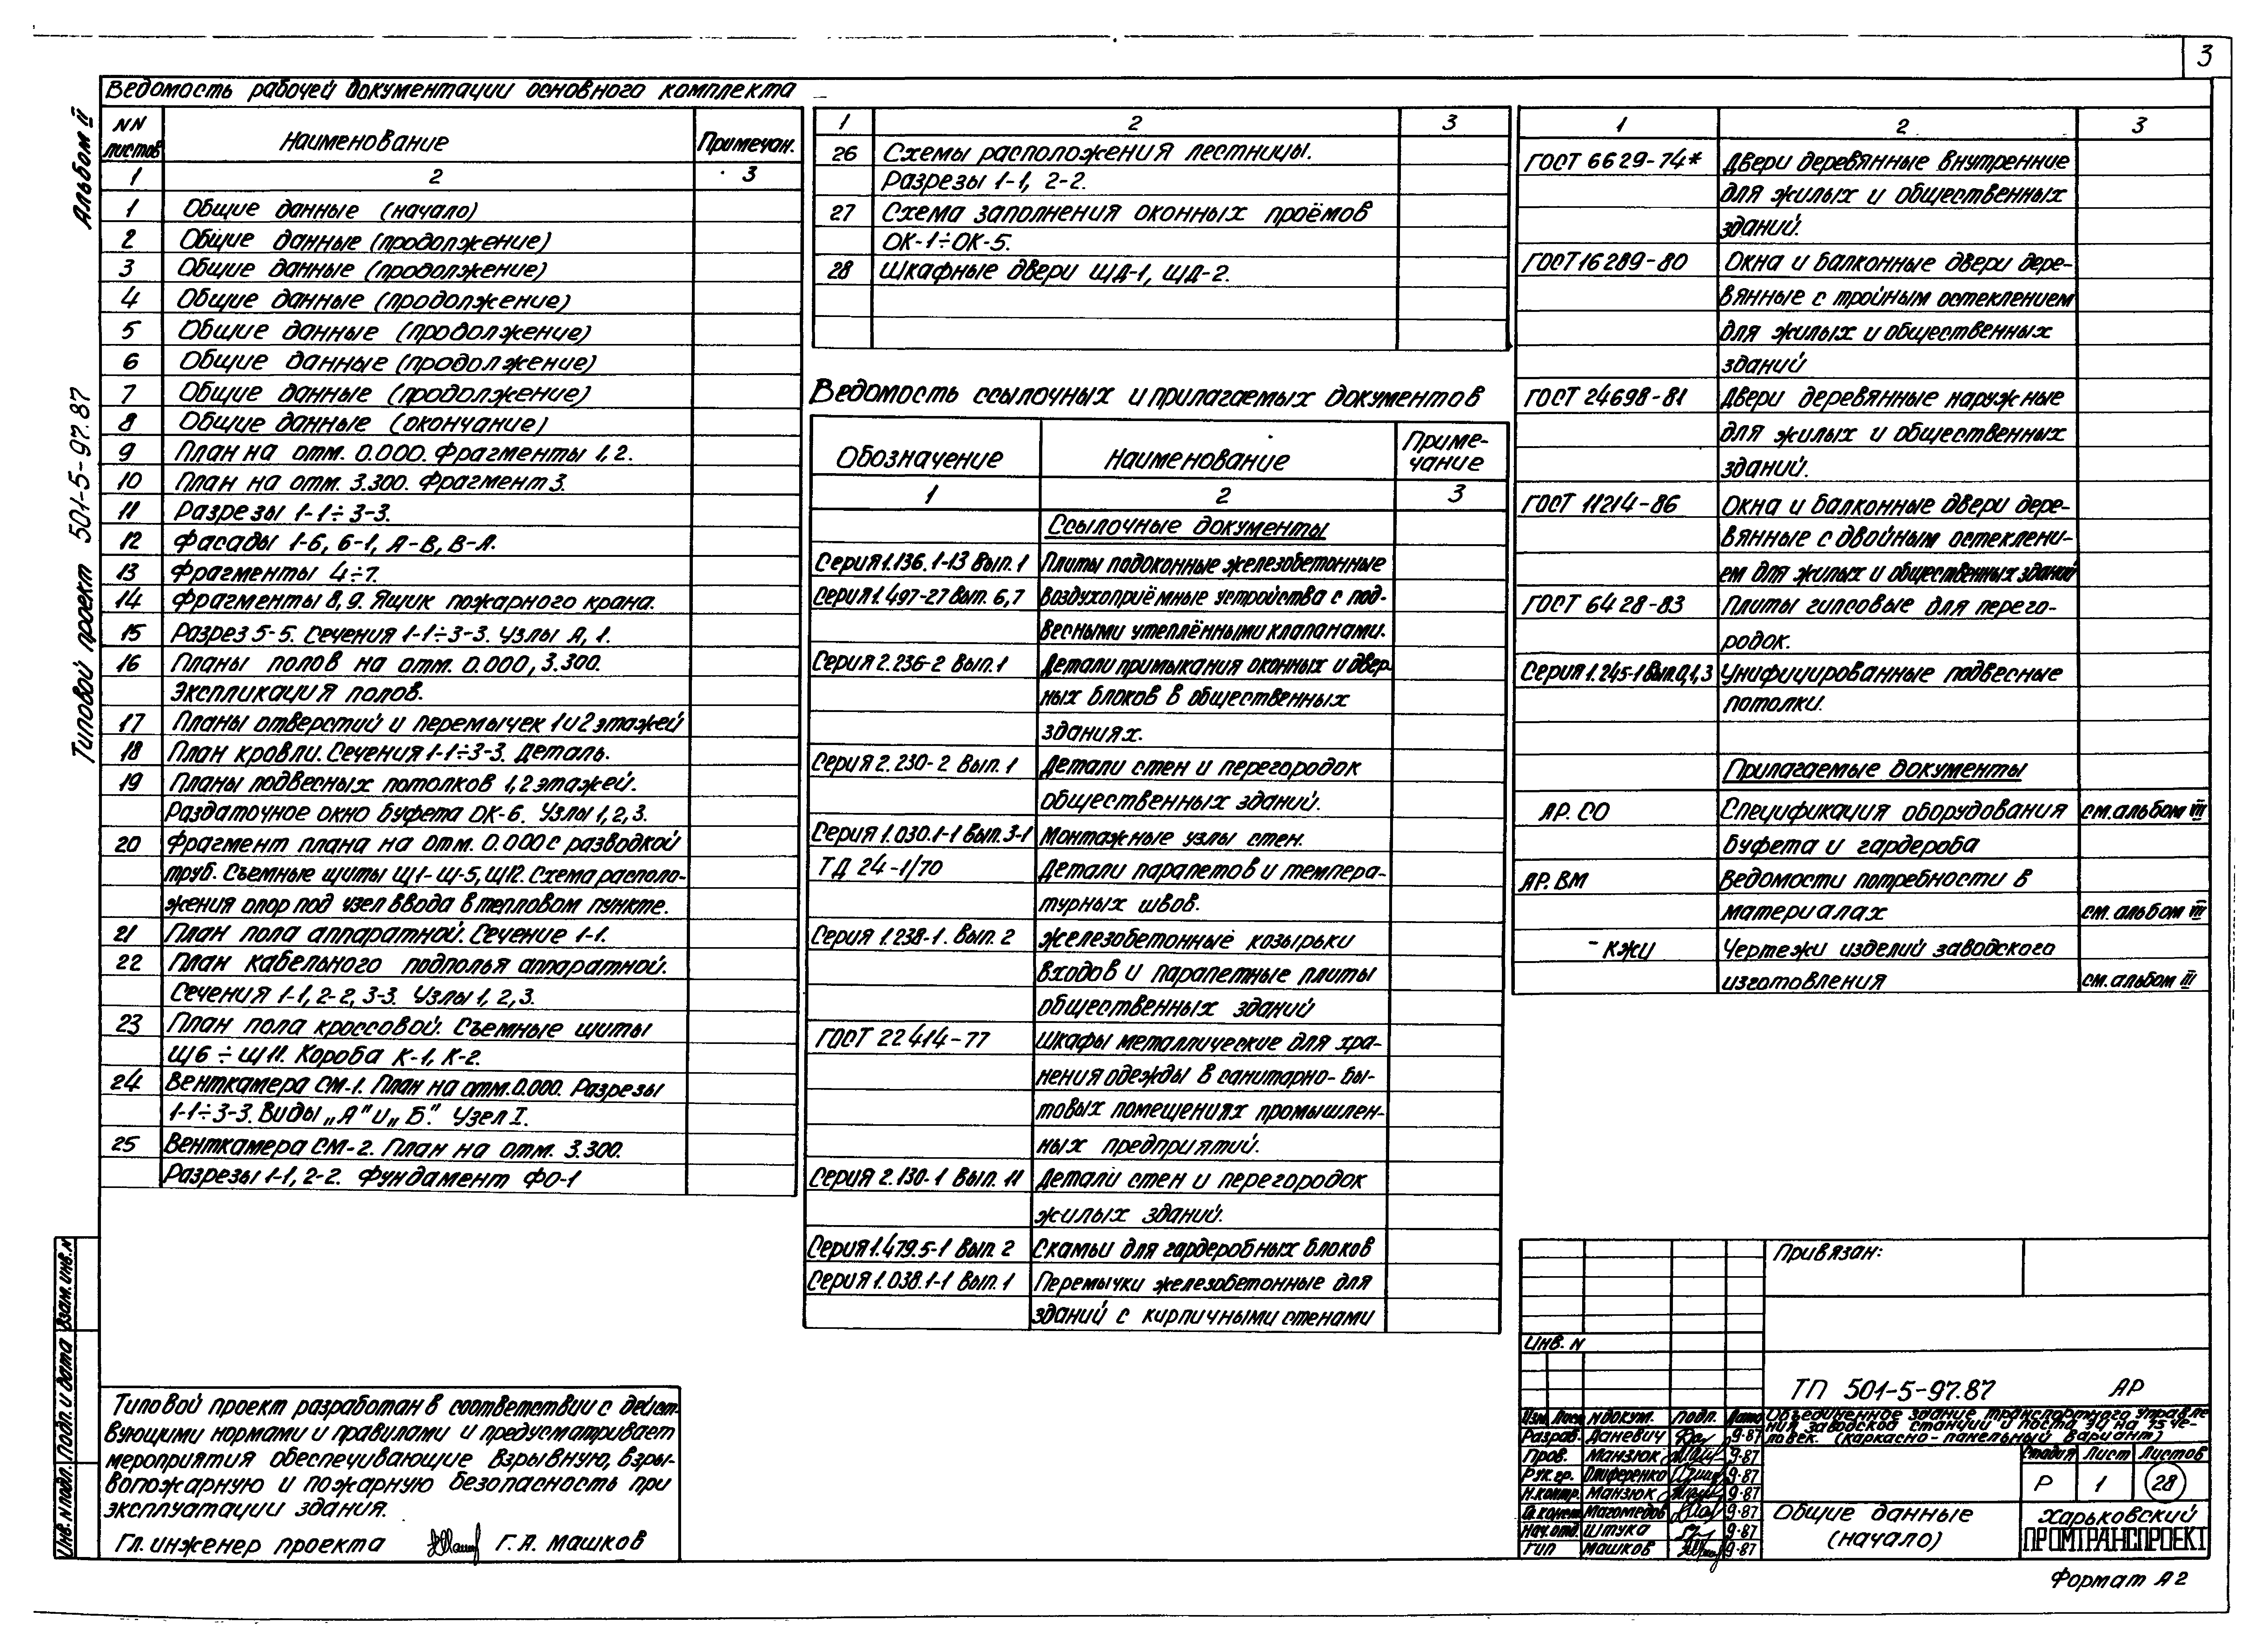 3
Альбом II
Типовой проект 501-5-97.87
Ведомость рабочей документации основного комплекта
NN листов Наименование Примечан.
1 2 3
1 Общие данные (начало)
2 Общие данные (продолжение)
3 Общие данные (продолжение)
4 Общие данные (продолжение)
5 Общие данные (продолжение)
6 Общие данные (продолжение)
7 Общие данные (продолжение)
8 Общие данные (окончание)
9 План на отм. 0.000. Фрагменты 1, 2.
10 План на отм. 3.300. Фрагмент 3.
11 Разрезы 1-1÷3-3.
12 Фасады 1-6, 6-1, А-В, В-А.
13 Фрагменты 4÷7.
14 Фрагменты 8, 9. Ящик пожарного крана.
15 Разрез 5-5. Сечения 1-1÷3-3. Узлы А, 1.
16 Планы полов на отм. 0.000, 3.300.
Экспликация полов.
17 Планы отверстий и перемычек 1 и 2 этажей
18 План кровли. Сечения 1-1÷3-3. Деталь.
19 Планы подвесных потолков 1, 2 этажей.
Раздаточное окно буфета ОК-6. Узлы 1, 2, 3.
20 Фрагмент плана на отм. 0.000 с разводкой
труб. Съемные щиты Щ1-Щ-5, Щ12. Схема располо-
жения опор под узел ввода в тепловом пункте.
21 План пола аппаратной. Сечение 1-1.
22 План кабельного подполья аппаратной.
Сечения 1-1, 2-2, 3-3. Узлы 1, 2, 3.
23 План пола кроссовой. Съемные щиты
Щ6÷Щ11. Короба К-1, К-2.
24 Венткамера СМ-1. План на отм. 0.000. Разрезы
1-1÷3-3. Виды „А" и „Б". Узел I.
25 Венткамера СМ-2. План на отм. 3.300.
Разрезы 1-1, 2-2. Фундамент ФО-1
1 2 3
26 Схемы расположения лестницы.
Разрезы 1-1, 2-2.
27 Схема заполнения оконных проёмов
ОК-1÷ОК-5.
28 Шкафные двери ЩД-1, ЩД-2.
Ведомость ссылочных и прилагаемых документов
Обозначение Наименование Приме-
чание
1 2 3
Ссылочные документы
Серия 1.136.1-13 Вып. 1 Плиты подоконные железобетонные
Серия 1.497-27 Вып. 6,7 Воздухоприёмные устройства с под-
весными утеплёнными клапанами.
Серия 2.236-2 Вып. 1 Детали примыкания оконных и двер
ных блоков в общественных
зданиях.
Серия 2.230-2 Вып. 1 Детали стен и перегородок
общественных зданий.
Серия 1.030.1-1 Вып. 3-1 Монтажные узлы стен.
ТД 24-1/70 Детали парапетов и темпера-
турных швов.
Серия 1.238-1. Вып. 2 Железобетонные козырьки
входов и парапетные плиты
общественных зданий
ГОСТ 22414-77 Шкафы металлические для хра-
нения одежды в санитарно-бы-
товых помещениях промышлен-
ных предприятий.
Серия 2.130-1 Вып. 11 Детали стен и перегородок
жилых зданий.
Серия 1.479.5-1 Вып. 2 Скамьи для гардеробных блоков
Серия 1.038.1-1 Вып. 1 Перемычки железобетонные для
зданий с кирпичными стенами
1 2 3
ГОСТ 6629-74* Двери деревянные внутренние
для жилых и общественных
зданий.
ГОСТ 16289-80 Окна и балконные двери дере-
вянные с тройным остеклением
для жилых и общественных
зданий
ГОСТ 24698-81 Двери деревянные наружные
для жилых и общественных
зданий.
ГОСТ 11214-86 Окна и балконные двери дере-
вянные с двойным остеклени-
ем для жилых и общественных зданий
ГОСТ 6428-83 Плиты гипсовые для перего-
родок.
Серия 1.245-1 Вып. 0,1,3 Унифицированные подвесные
потолки.
Прилагаемые документы
АР. СО Спецификация оборудования см. альбом III
буфета и гардероба
АР. ВМ Ведомости потребности в
материалах см. альбом III
- КЖИ Чертежи изделий заводского
изготовления см. альбом III
Типовой проект разработан в соответствии с дейст-
вующими нормами и правилами и предусматривает
мероприятия обеспечивающие взрывную, взры-
вопожарную и пожарную безопасность при
эксплуатации здания.
Гл. инженер проекта Г. А. Машков
Взам. инв. N
Подп. и дата
Инв. N подл.
Привязан:
Инв. N
ТП 501-5-97.87 АР
Изм. Лист N докум. Подп. Дата
Разраб. Даневич 9-87
Пров. Манзюк 9-87
Рук. гр. Олиференко 9-87
Н. контр. Манзюк 9-87
Гл. конст. Магомедов 9-87
Нач. отд. Штука 9-87
ГИП Машков 9-87
Объединенное здание транспортного управле-
ния заводской станции и поста ЭЦ на 75 че-
ловек. (каркасно-панельный вариант)
Стадия Лист Листов
Р 1 28
Общие данные
(начало)
Харьковский
ПРОМТРАНСПРОЕКТ
Формат А2